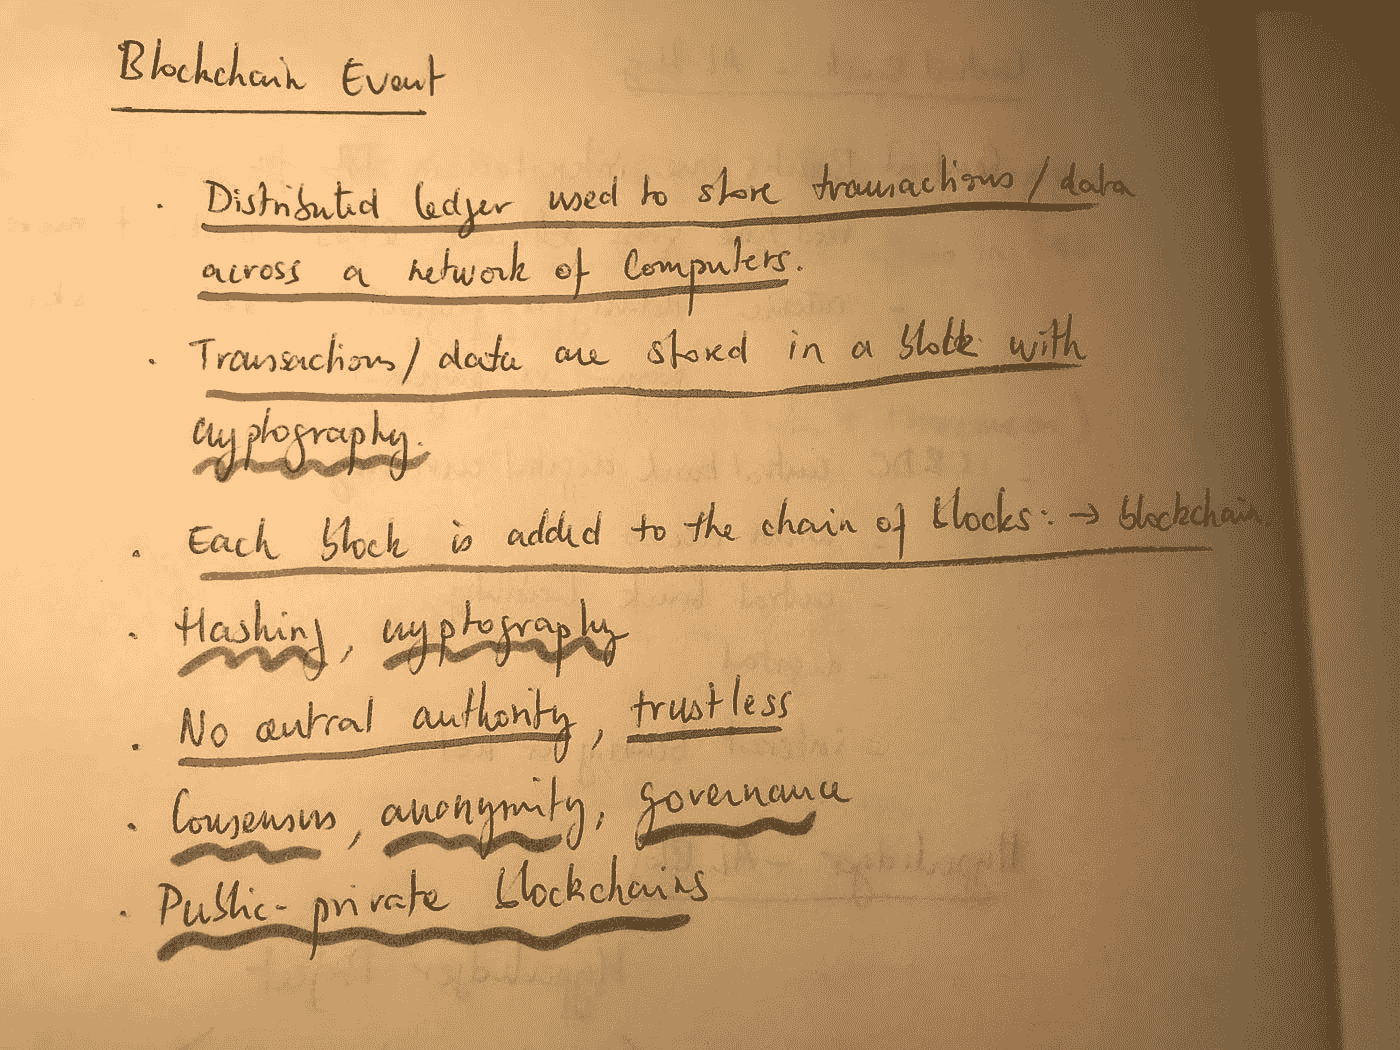 Blockchain Event
· Distributed ledger used to store transactions/data
across a network of Computers.
· Transactions/data are stored in a block with
cryptography.
· Each block is added to the chain of blocks: → blockchain
· Hashing, cryptography
· No central authority, trustless
· Consensus, anonymity, governance
· Public-private blockchains